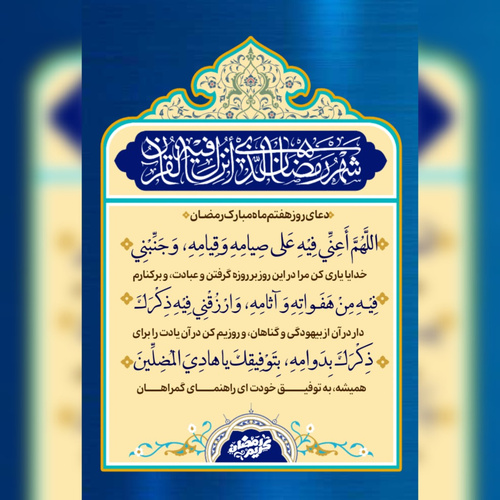 شهر رمضان الذي أنزل فيه القرآن
دعای روز هفتم ماه مبارک رمضان
اللَّهُمَّ أَعِنِّي فِيهِ عَلَى صِيامِهِ وَقِيامِهِ، وَجَنِّبْنِي
خدایا یاری کن مرا در این روز بر روزه گرفتن و عبادت، و برکنارم
فِيهِ مِنْ هَفَواتِهِ وَآثامِهِ، وَارْزُقْنِي فِيهِ ذِكْرَكَ
دار در آن از بیهودگی و گناهان، و روزیم کن در آن یادت را برای
ذِكْرَكَ بِدَوامِهِ، بِتَوْفِيقِكَ يا هادِيَ الْمُضِلِّينَ
همیشه، به توفیق خودت ای راهنمای گمراهان
رمضان کریم